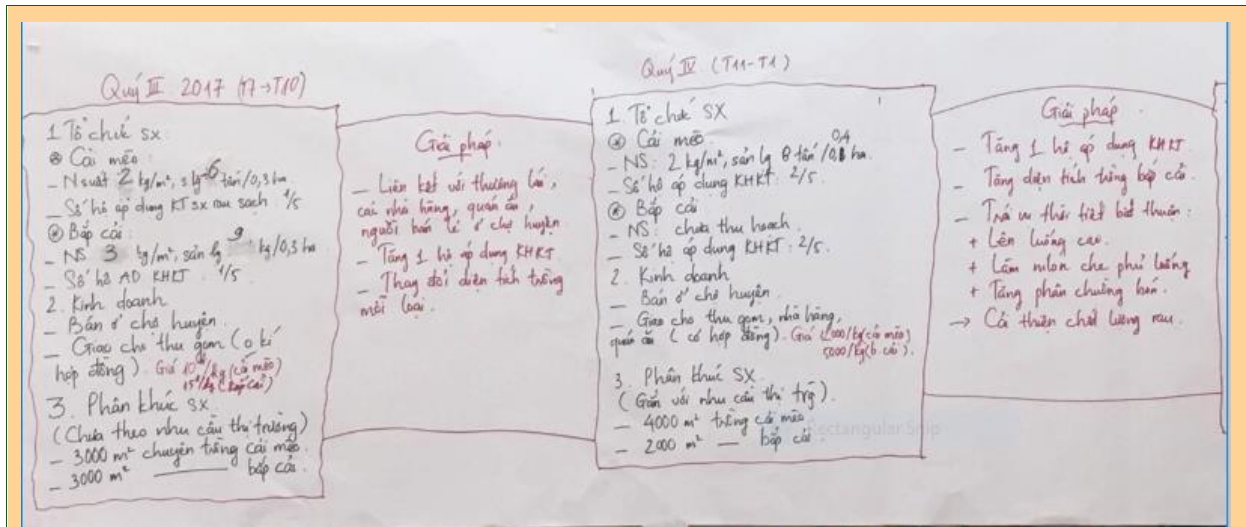 Quý III 2017 (T7→T10)
1 Tổ chức SX:
⊛ Cải mèo:
– Nsuất 2 kg/m², s lg 6 tấn/0,3 ha
– Số hộ áp dụng KT sx rau sạch 1/5
⊛ Bắp cải:
– NS 3 kg/m², sản lg 9 kg/0,3 ha
– Số hộ AD KHKT: 1/5
2. Kinh doanh
– Bán ở chợ huyện.
– Giao cho thu gom (o kí
hợp đồng). Giá 10đ/kg (cải mèo)
15đ/kg (bắp cải)
3. Phân khúc SX
(Chưa theo nhu cầu thị trường)
– 3000 m² chuyên trồng cải mèo.
– 3000 m² ——— bắp cải.
Giải pháp.
– Liên kết với thương lái,
các nhà hàng, quán ăn,
người bán lẻ ở chợ huyện.
– Tăng 1 hộ áp dụng KHKT
– Thay đổi diện tích trồng
mỗi loại.
Quý IV (T11-T1)
1. Tổ chức SX
⊛ Cải mèo
– NS: 2 kg/m², sản lg 8 tấn/0,4 ha.
– Số hộ áp dụng KHKT: 2/5.
⊛ Bắp cải
– NS: chưa thu hoạch
– Số hộ áp dụng KHKT: 2/5.
2. Kinh doanh
– Bán ở chợ huyện
– Giao cho thu gom, nhà hàng,
quán ăn (có hợp đồng). Giá 000/kg (cải mèo)
5000/kg (b cải).
3. Phân khúc SX
(Gắn với nhu cầu thị trg).
– 4000 m² trồng cải mèo
– 2000 m² — bắp cải.
Rectangular Snip
Giải pháp
– Tăng 1 hộ áp dụng KHKT.
– Tăng diện tích trồng bắp cải.
– Trá vụ thời tiết bất thuận:
+ Lên luống cao.
+ Làm nilon che phủ luống
+ Tăng phân chuồng bón.
→ Cải thiện chất lượng rau.